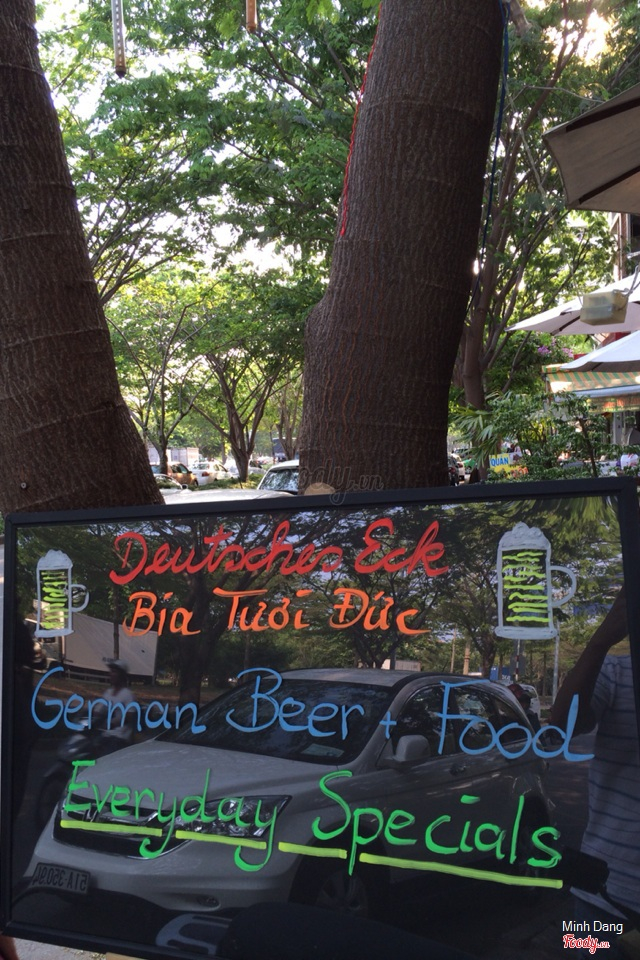 QUÁN
Deutsches Eck
Bia Tươi Đức
German Beer + Food
Everyday Specials
Minh Dang
Foody.vn